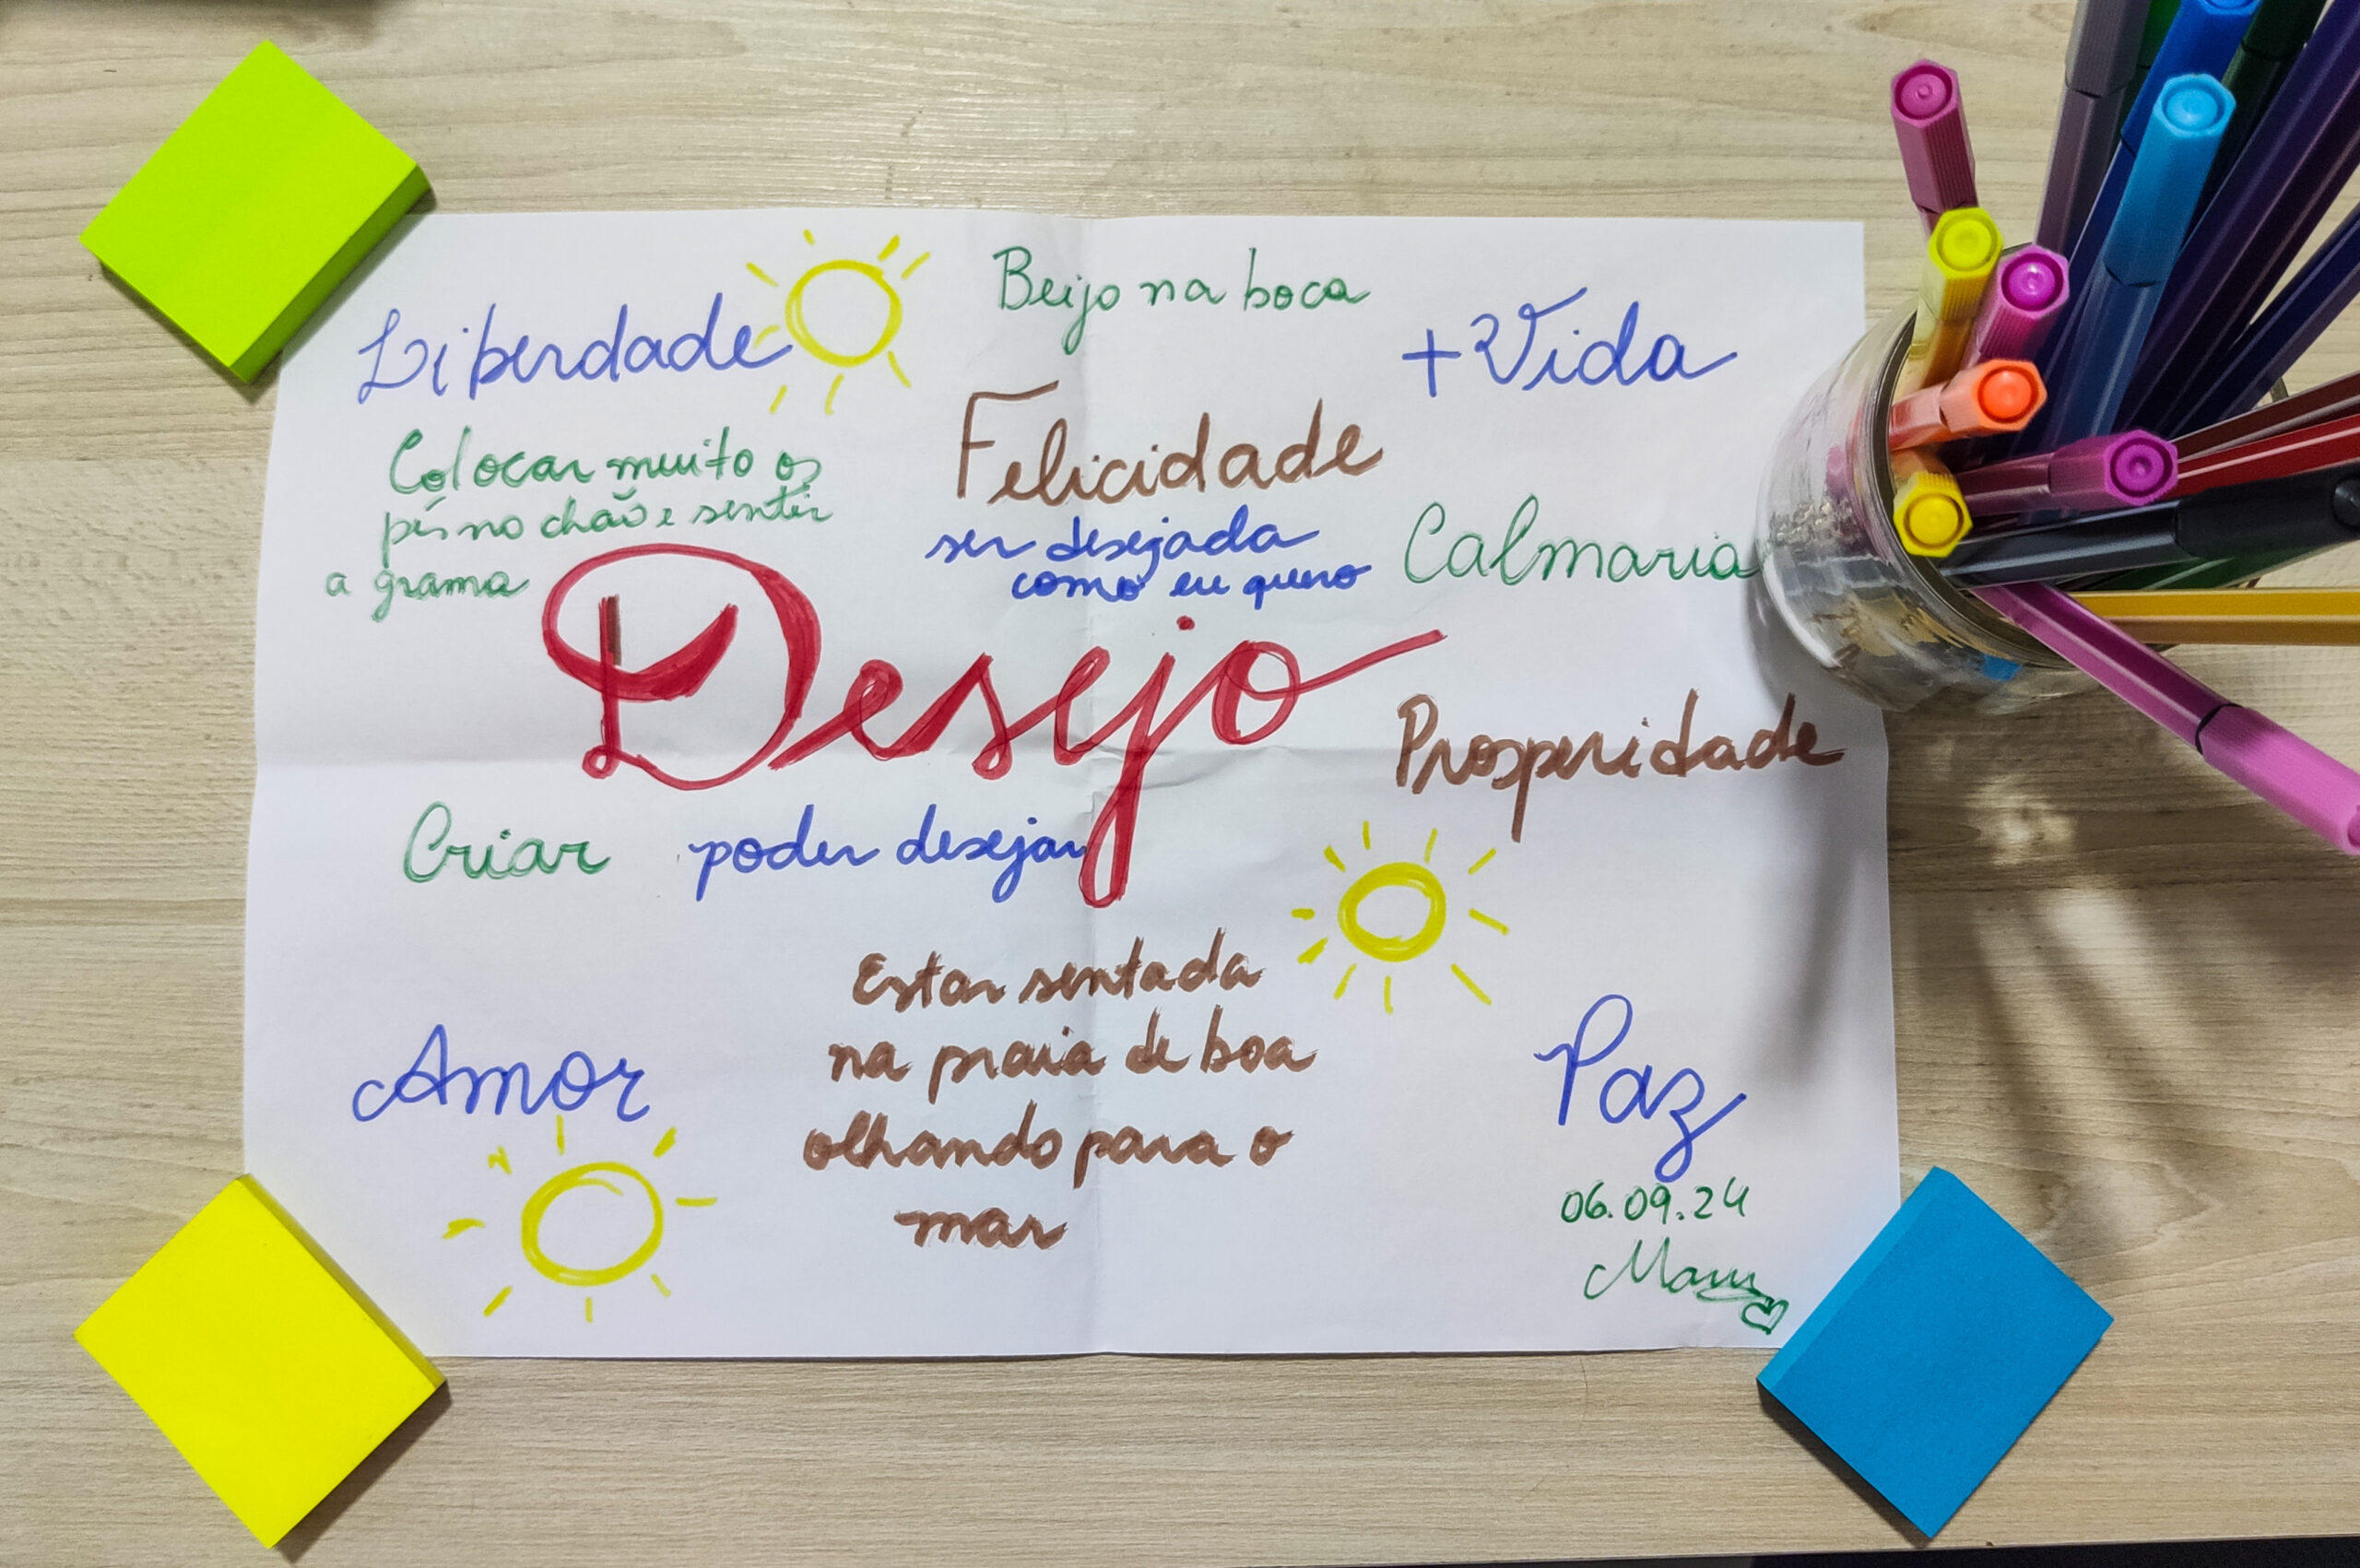 Liberdade
Beijo na boca
+ Vida
Colocar muito os
pés no chão e sentir
a grama
Felicidade
ser desejada
como eu quero
Calmaria
Desejo
Prosperidade
Criar
poder desejar
Estar sentada
na praia de boa
olhando para o
mar
Amor
Paz
06.09.24